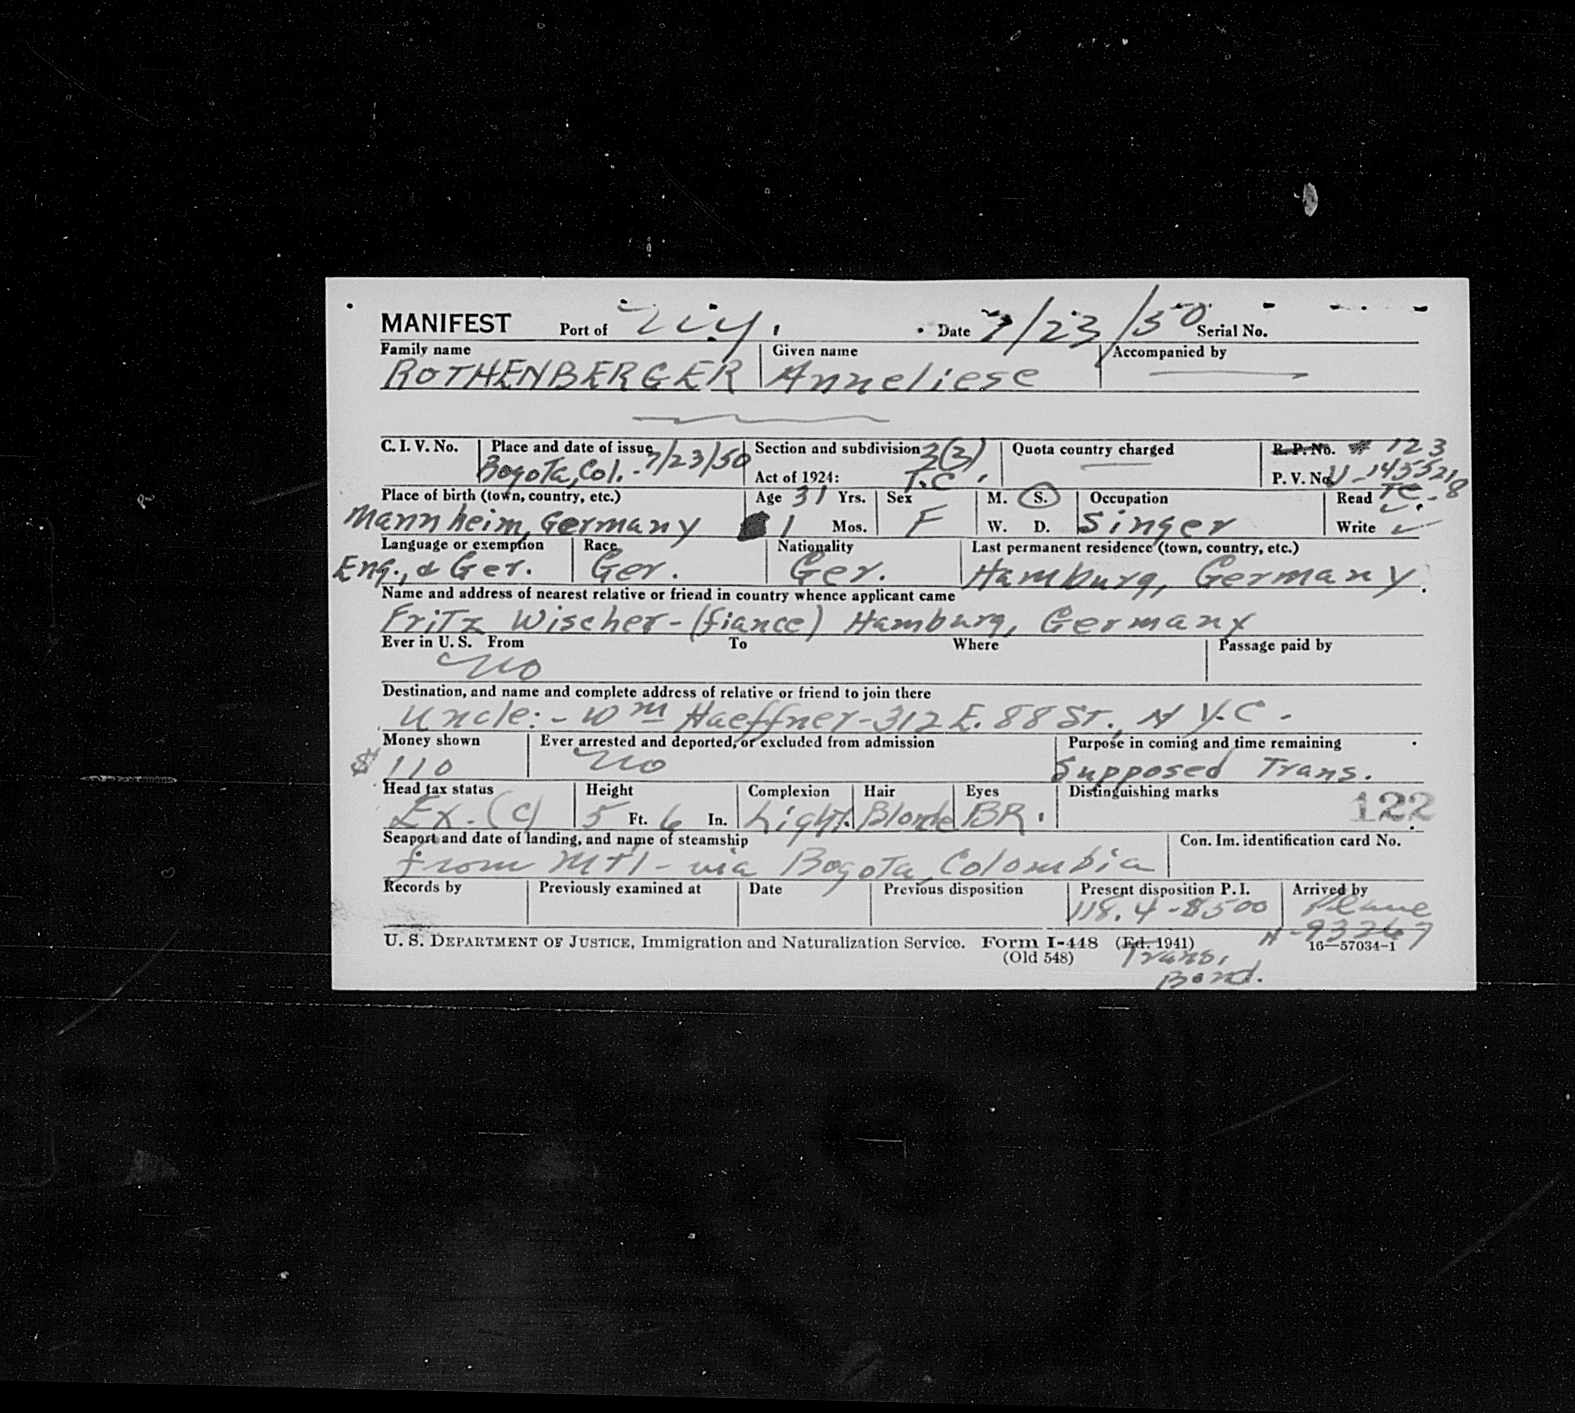 MANIFEST Port of N.Y. Date 7/23/50 Serial No.
Family name Given name Accompanied by
ROTHENBERGER Anneliese
C. I. V. No. Place and date of issue Section and subdivision 3(3) Quota country charged R. P. No. # 123
Bogota, Col. - 7/23/50 Act of 1924: T.C. P. V. No.
Place of birth (town, country, etc.) Age 31 Yrs. Sex M. S. Occupation Read
Mannheim, Germany 1 Mos. F W. D. Singer Write ✓
Language or exemption Race Nationality Last permanent residence (town, country, etc.)
Eng., & Ger. Ger. Ger. Hamburg, Germany.
Name and address of nearest relative or friend in country whence applicant came
Fritz Wischer - (fiance) Hamburg, Germany
Ever in U. S. From To Where Passage paid by
No
Destination, and name and complete address of relative or friend to join there
Uncle: - Wm Haeffner - 312 E. 88 St., N Y.C.
Money shown Ever arrested and deported, or excluded from admission Purpose in coming and time remaining
$110 No Supposed Trans.
Head tax status Height Complexion Hair Eyes Distinguishing marks
Ex. (c) 5 Ft. 6 In. Light. Blonde BR. 122
Seaport and date of landing, and name of steamship Con. Im. identification card No.
from Mtl - via Bogota, Colombia
Records by Previously examined at Date Previous disposition Present disposition P. I. Arrived by
118.4 - $500 Plane
U. S. DEPARTMENT OF JUSTICE, Immigration and Naturalization Service. Form I-448 (Ed. 1941) H-93267
(Old 548) Trans. 16—57034-1
Bond.